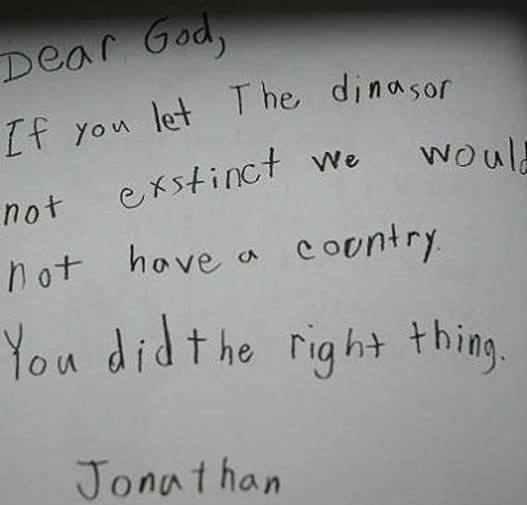 Dear God,
If you let The dinasor
not exstinct we would
not have a country.
You did the right thing.
Jonathan